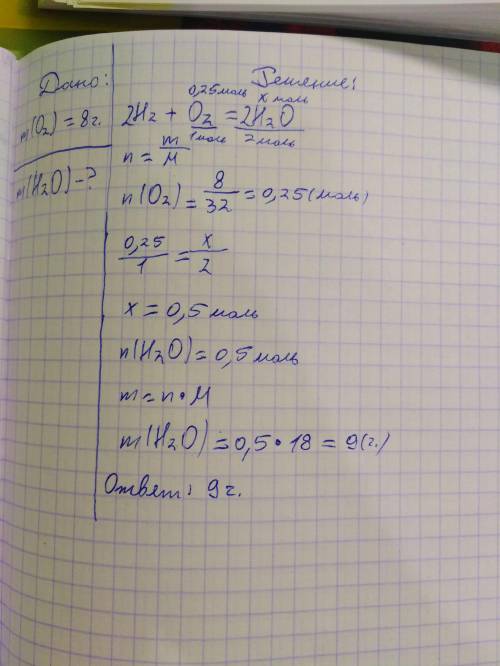 Дано:
m(O₂) = 8г.
m(H₂O) - ?
Решение:
0,25моль x моль
2H₂ + O₂ = 2H₂O
1моль 2моль
n = m/M
n(O₂) = 8/32 = 0,25(моль)
0,25/1 = x/2
x = 0,5 моль
n(H₂O) = 0,5 моль
m = n • M
m(H₂O) = 0,5 • 18 = 9(г.)
Ответ: 9г.